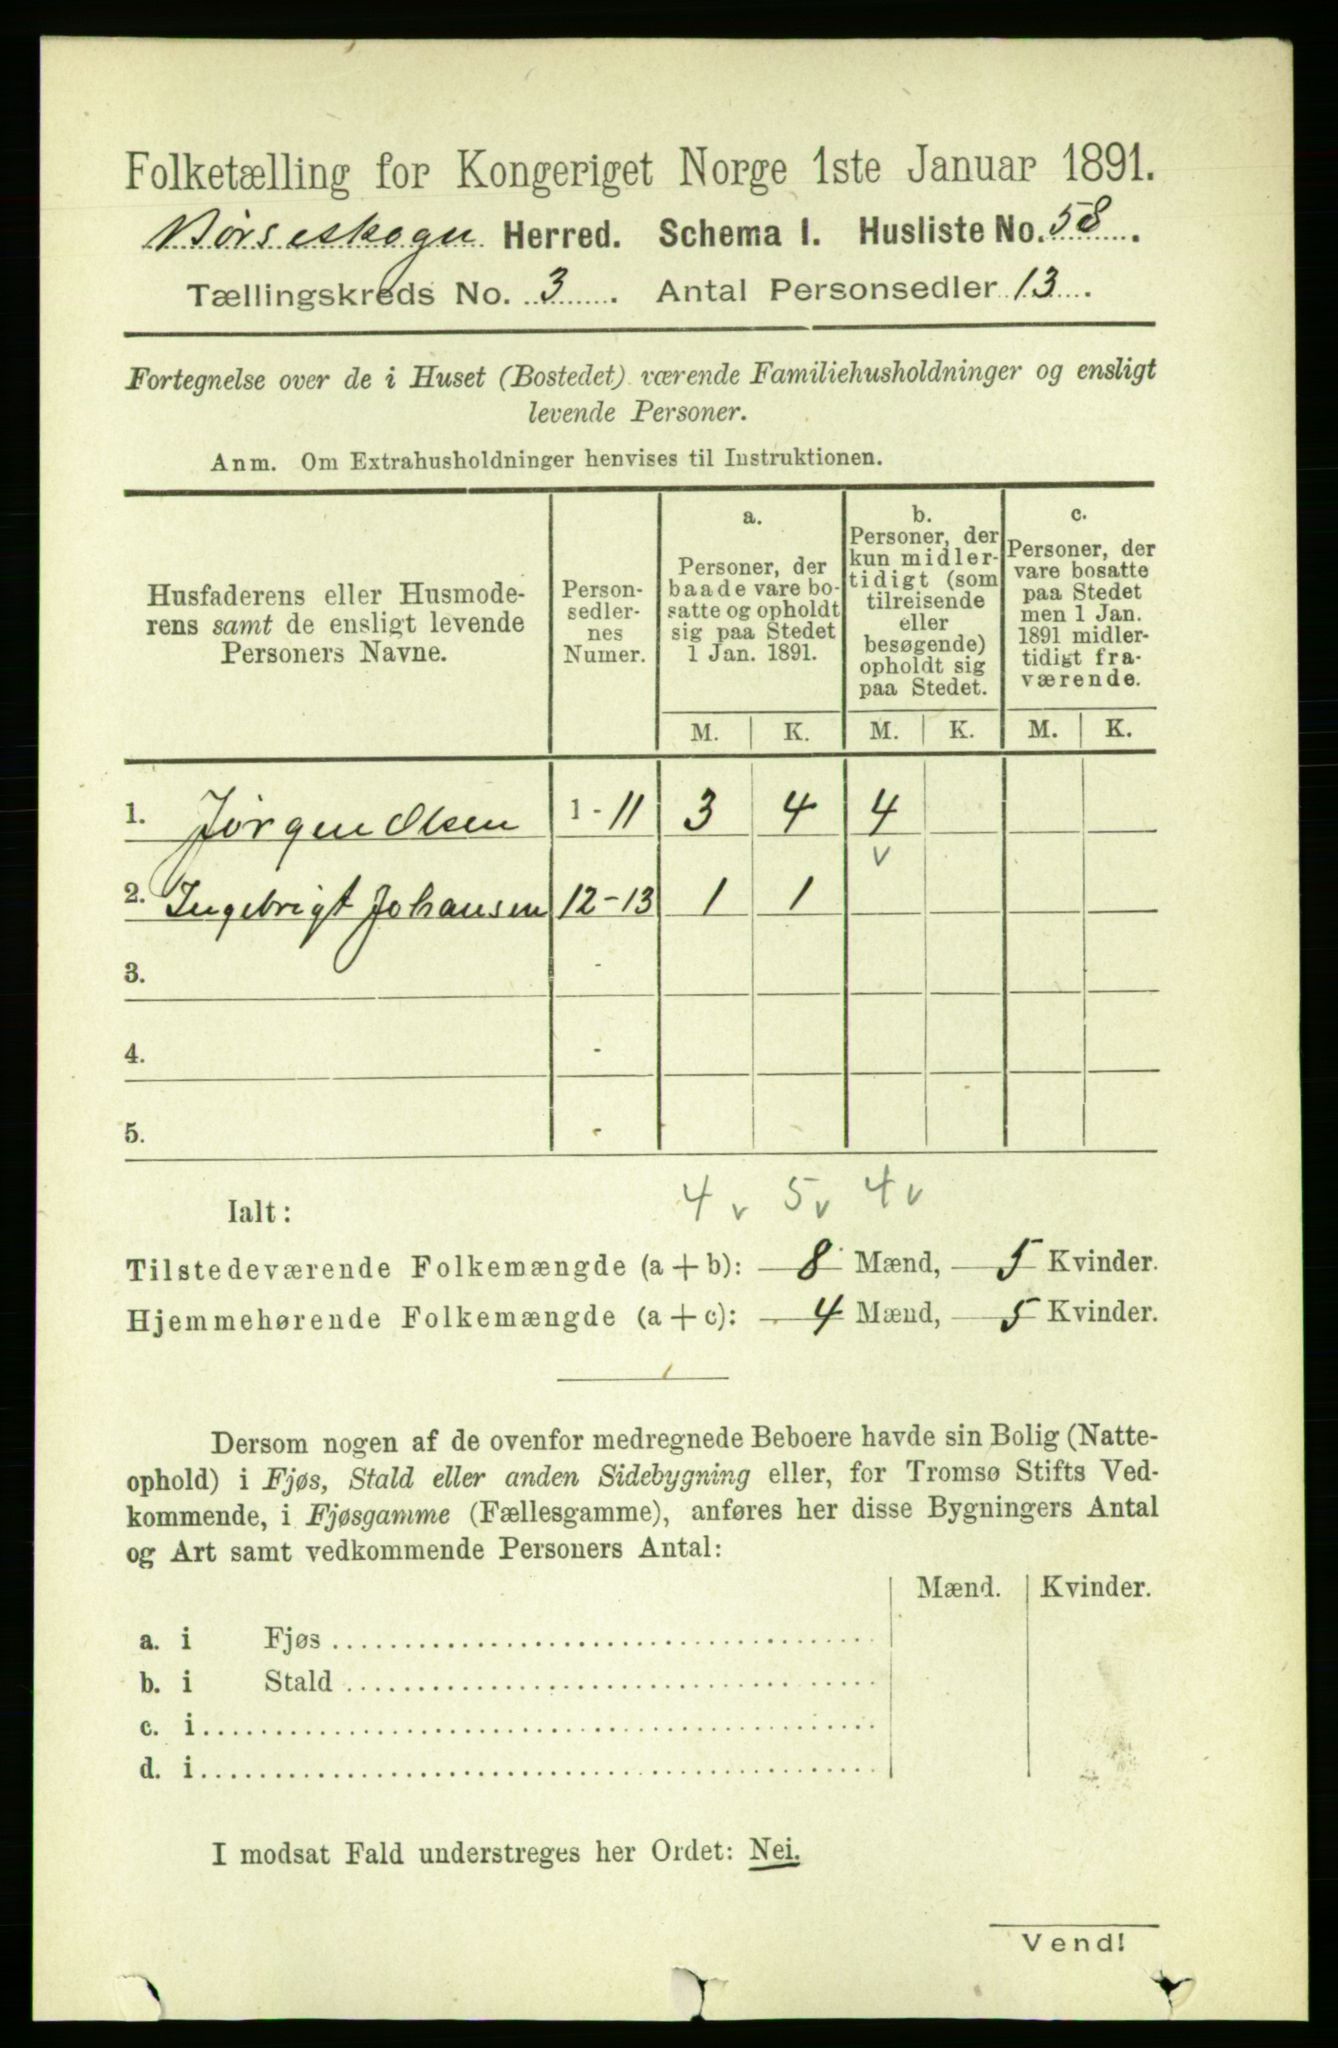 Folketælling for Kongeriget Norge 1ste Januar 1891.
Børseskogn Herred. Schema I. Husliste No. 58.
Tællingskreds No. 3. Antal Personsedler 13.
Fortegnelse over de i Huset (Bostedet) værende Familiehusholdninger og ensligt
levende Personer.
Anm. Om Extrahusholdninger henvises til Instruktionen.
Husfaderens eller Husmode-
rens samt de ensligt levende
Personers Navne.
Person-
sedler-
nes
Numer.
a.
Personer, der
baade vare bo-
satte og opholdt
sig paa Stedet
1 Jan. 1891.
b.
Personer, der
kun midler-
tidigt (som
tilreisende
eller
besøgende)
opholdt sig
paa Stedet.
c.
Personer, der
vare bosatte
paa Stedet
men 1 Jan.
1891 midler-
tidigt fra-
værende.
M. K. M. K. M. K.
1. Jørgen Olsen 1 - 11 3 4 4
v
2. Ingebrigt Johansen 12 - 13 1 1
3. -
4. -
5. -
4 v 5 v 4 v
Ialt:
Tilstedeværende Folkemængde (a + b): 8 Mænd, 5 Kvinder.
Hjemmehørende Folkemængde (a + c): 4 Mænd, 5 Kvinder.
Dersom nogen af de ovenfor medregnede Beboere havde sin Bolig (Natte-
ophold) i Fjøs, Stald eller anden Sidebygning eller, for Tromsø Stifts Ved-
kommende, i Fjøsgamme (Fællesgamme), anføres her disse Bygningers Antal
og Art samt vedkommende Personers Antal:
Mænd. Kvinder.
a. i Fjøs
b. i Stald
c. i
d. i
I modsat Fald understreges her Ordet: Nei.
Vend!